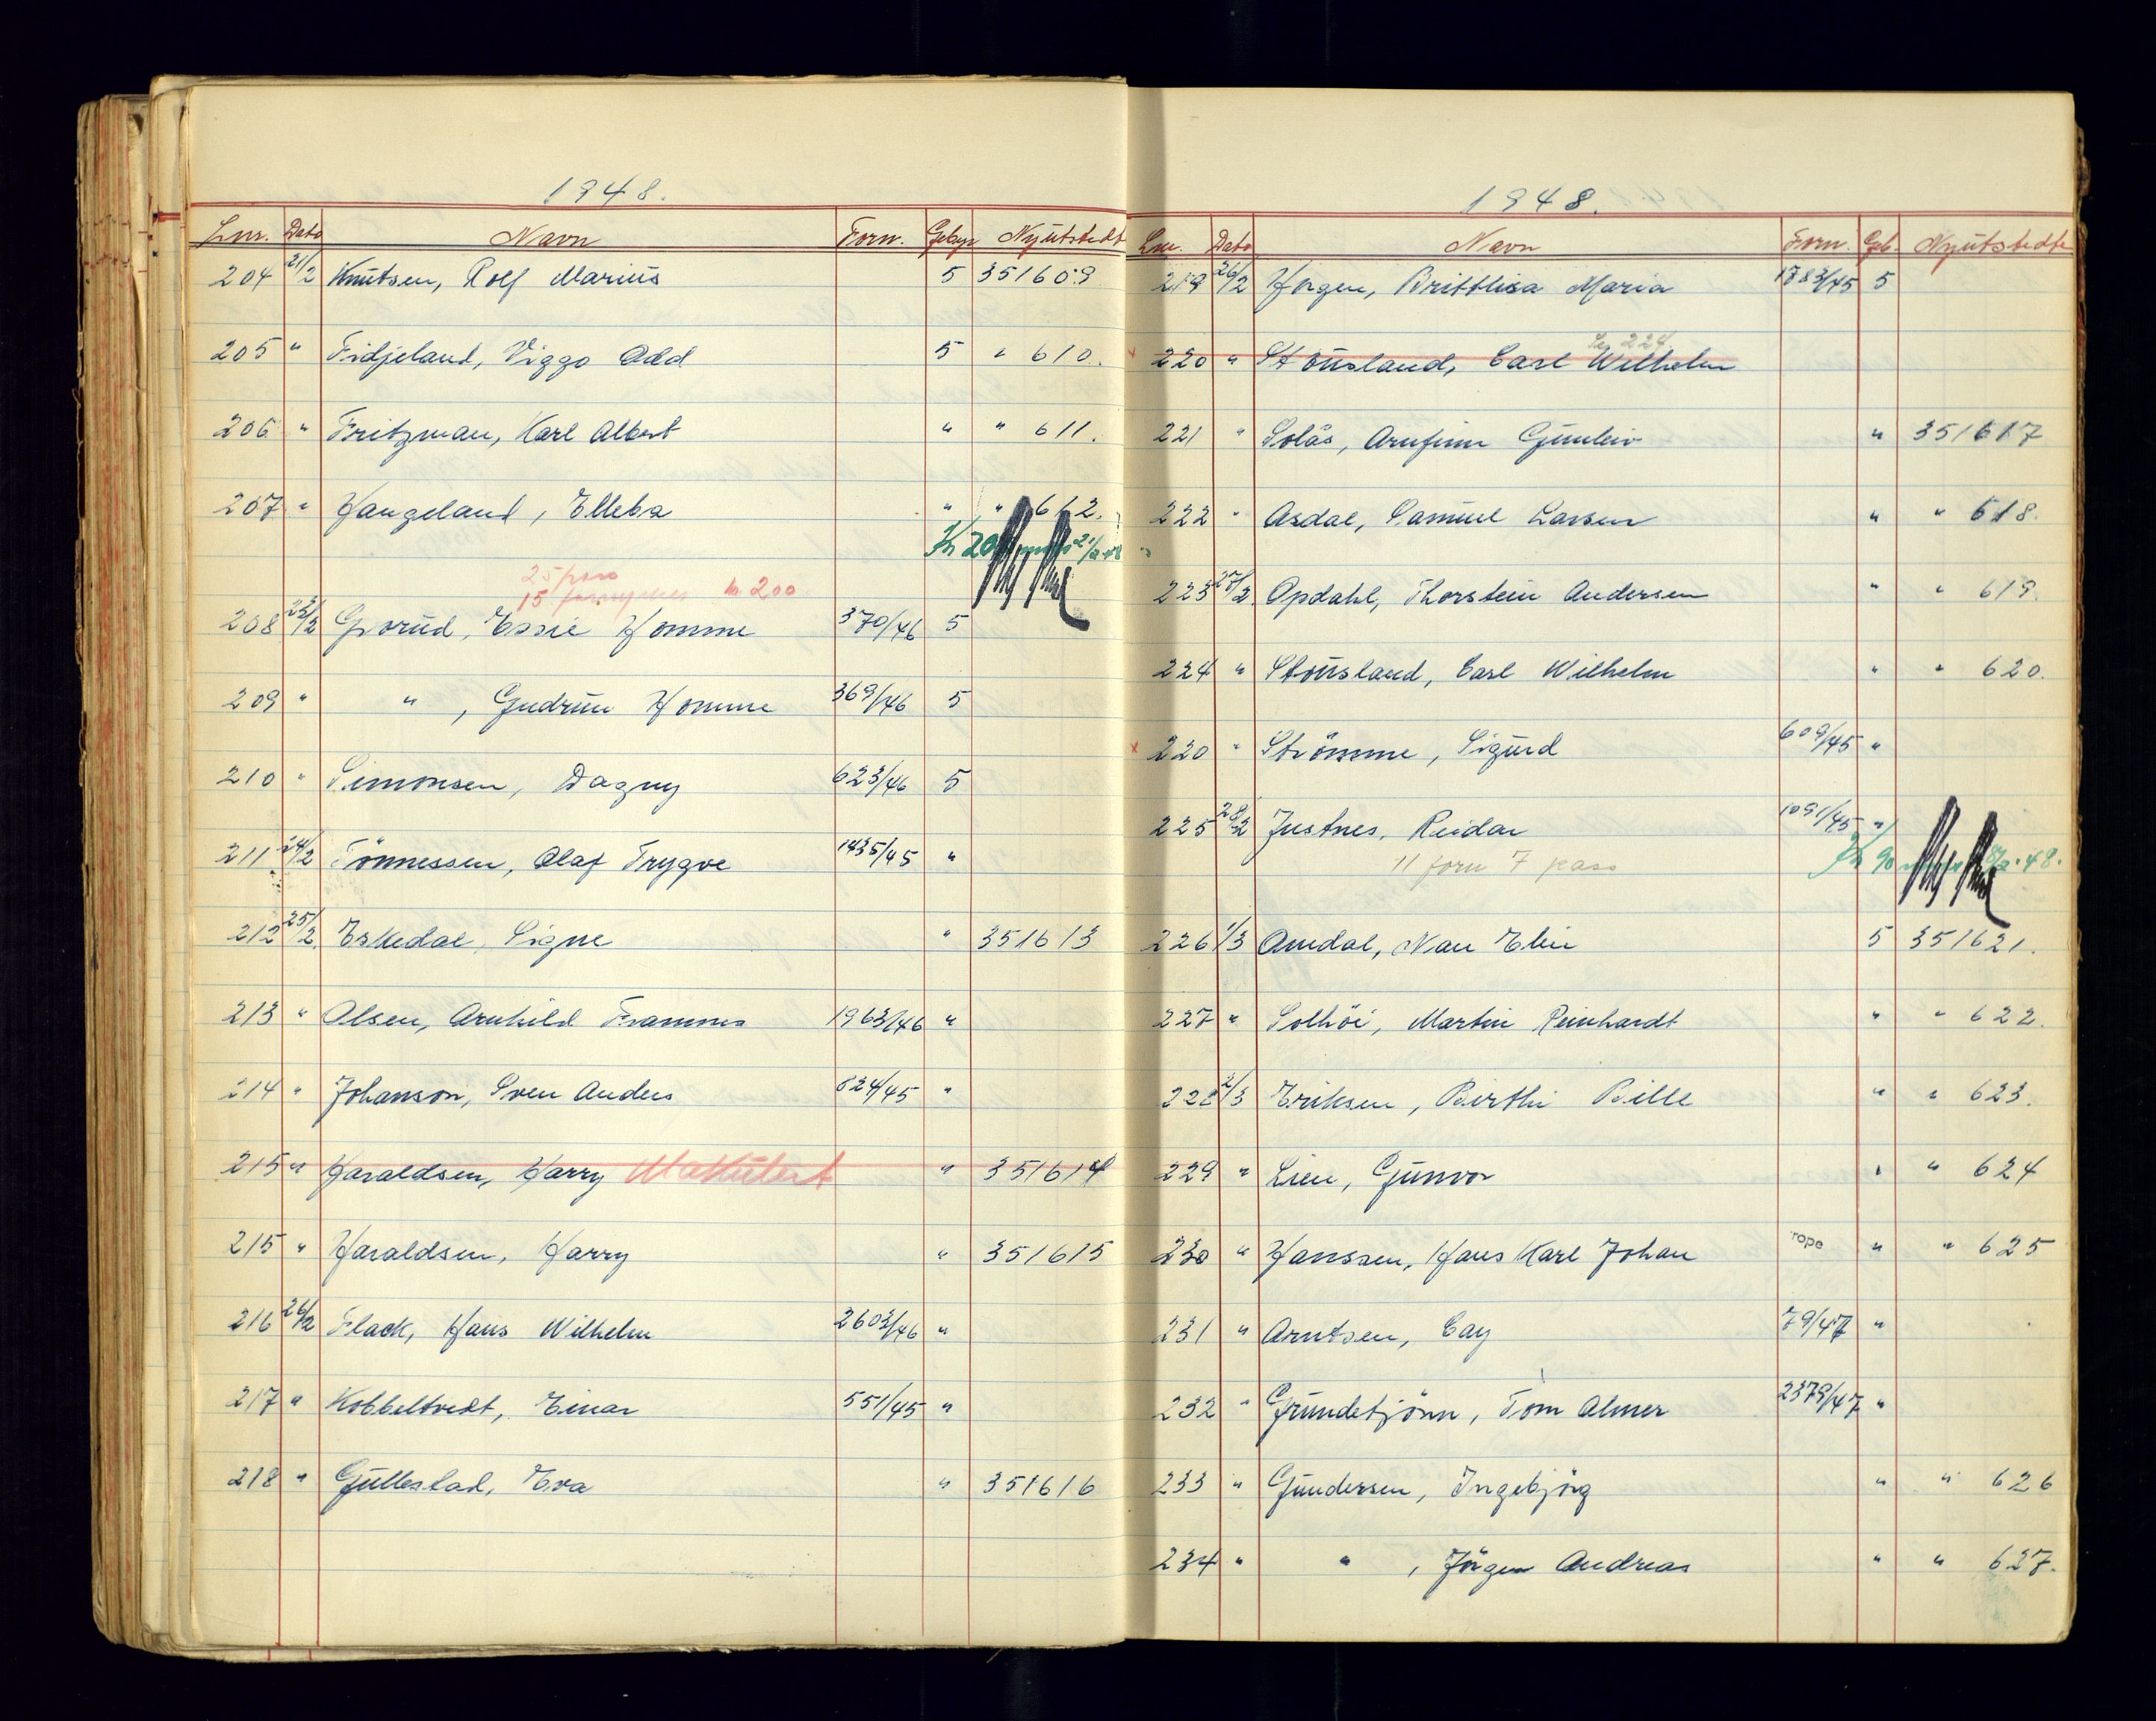 1948.
Lnr. Dato Navn Forn. Gebyr Nyutstedt
204 21/2 Knutsen, Rolf Marius 5 351609
205 " Fidjeland, Viggo Odd 5 " 610.
206 " Fritzman, Karl Albert " " 611.
207 " Haugeland, Elleba " " 612.
Kr 20
25 pass
15 fornyelser kr. 200
208 23/2 Grorud, Essie Homme 370/46 5
209 " " , Gudrun Homme 369/46 5
210 " Simonsen, Dagny 623/46 5
211 24/2 Tönnessen, Olaf Trygve 1435/45 "
212 25/2. Eskedal, Signe " 351613
213 " Olsen, Arnhild Frammes 1963/46 "
214 " Johanson, Sven Anders 824/45 "
215 " Haraldsen, Harry Makulert " 351614
215 " Haraldsen, Harry " 351615
216 26/2 Flack, Hans Wilhelm 2603/46 "
217 " Kobbeltvedt, Einar 551/45 "
218 " Gullestad, Eva " 351616
1948.
Lnr. Dato Navn Forn. Geb. Nyutstedte
219 26/2 Horgen, Brittlisa Maria 1783/45 5
224
220 " Stöusland, Carl Wilhelm
221 " Solås, Arnfinn Gunleiv " 351617
222 " Aasdal, Samuel Larsen " " 618.
223 27/2 Opdahl, Thorstein Andersen " " 619.
224 " Stöusland, Carl Wilhelm " " 620.
x 220 " Strömme, Sigurd 609/45 "
225 28/2 Justnes, Reidar 1091/45 "
11 forn 7 pass
Kr 90 48.
226 1/3 Omdal, Nan Elin 5 351621.
227 " Solhöi, Martin Reinhardt " " 622.
228 2/3 Eriksen, Birthi Bille " " 623.
229 " Lien, Gunvor " " 624
230 " Hanssen, Hans Karl Johan rope " " 625
231 " Arntsen, Cay 79/47 "
232 " Grundetjönn, Tom Almer 2379/47 "
233 " Gundersen, Ingebjörg " " 626
234 " " , Jörgen Andreas " " 627.